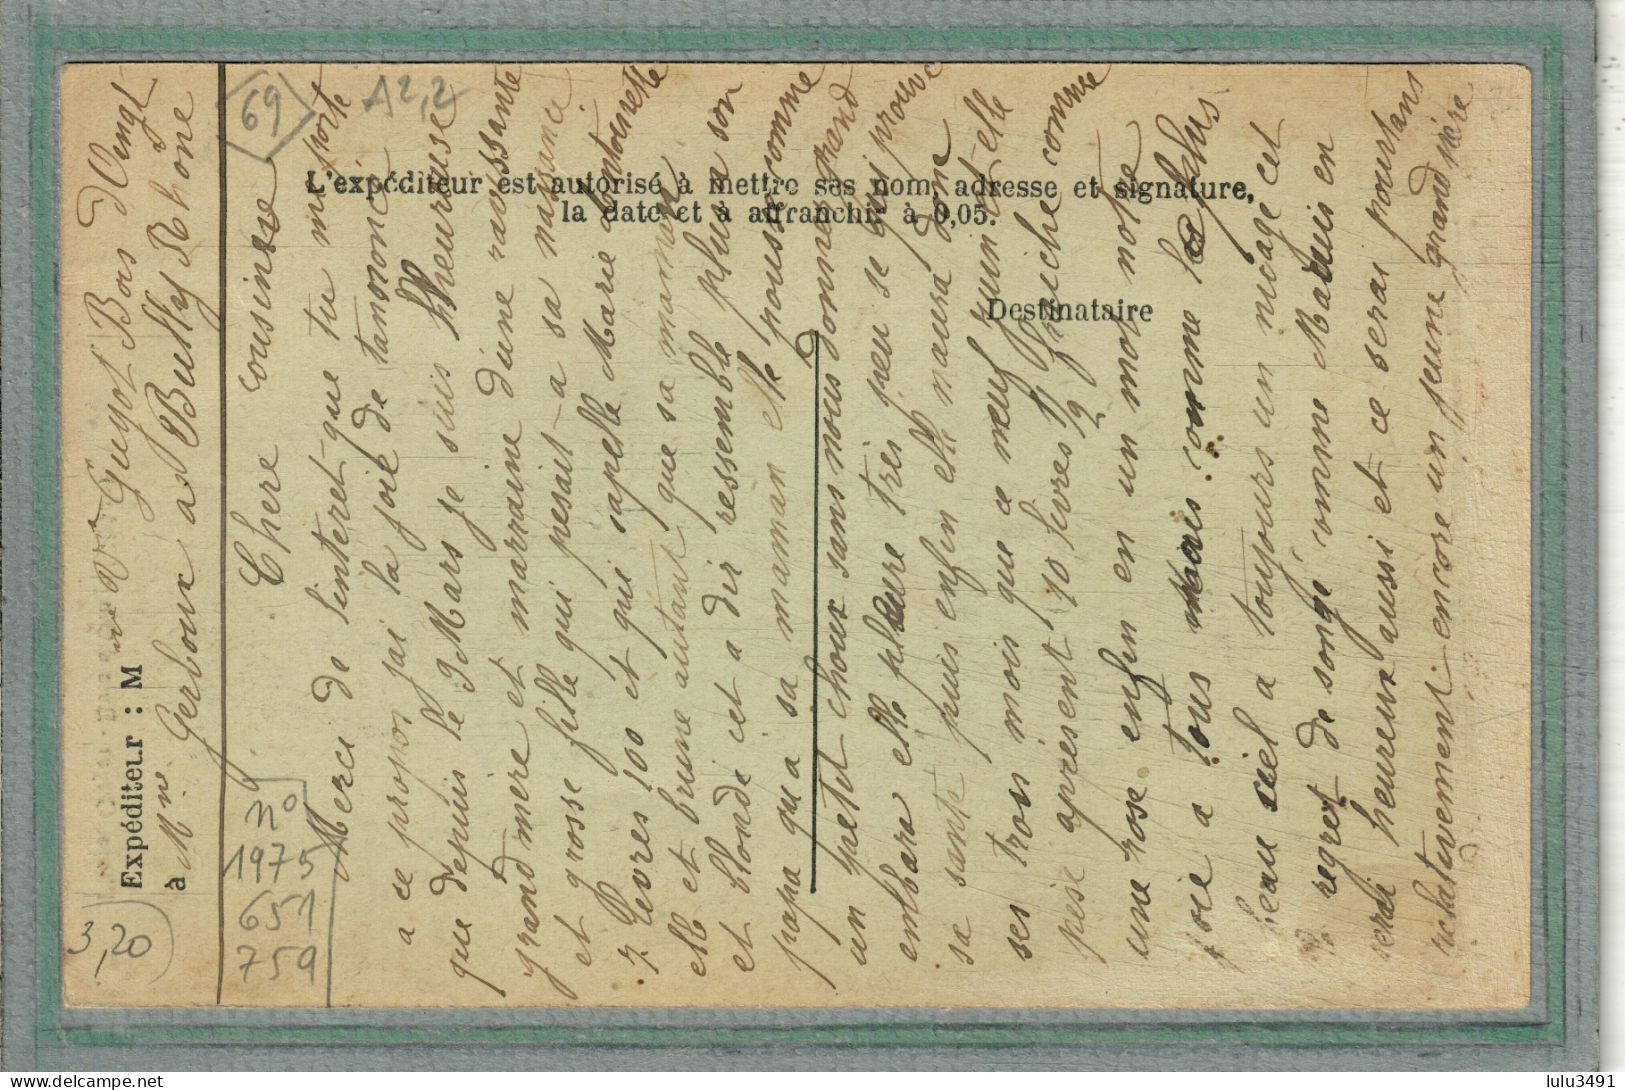 L'expéditeur est autorisé à mettre ses nom, adresse et signature,
la date et à affranchir à 0,05.
Destinataire
Expéditeur : M me Vve Guyot Bois d'Oingt
à Mr Gerboux a Bully Rhone
69
A2,2
n°
1975
651
759
3,20
Chere cousine
Merci de linteret que tu me porte
a ce propos jai la joie de tanoncé
que depuis le 9 Mars je suis lheureuse
grand mere et marraine dune ravissante
et grosse fille qui pesait a sa naissance
7 livres 100 et qui sapelle Marie Antoinette
elle et brune autant que sa maman
et blonde cet a dir ressemble plus a son
papa qu a sa maman elle pousse comme
un petit choux sans nous donner grand
embara elle pleure tres peu se qui prouve
sa santé puis enfin elle naura donc
ses trois mois que ce neuf juin et elle
pese apresent 10 livres 1/2 fraiche comme
une rose enfin en un mot notre
joie a tous mais comme le plus
beau ciel a toujours un nuage cet
le regret de songé conne Mari en
serai heureux aussi et ce serai pourtans
relativement encore un jeune grand père
lulu3491